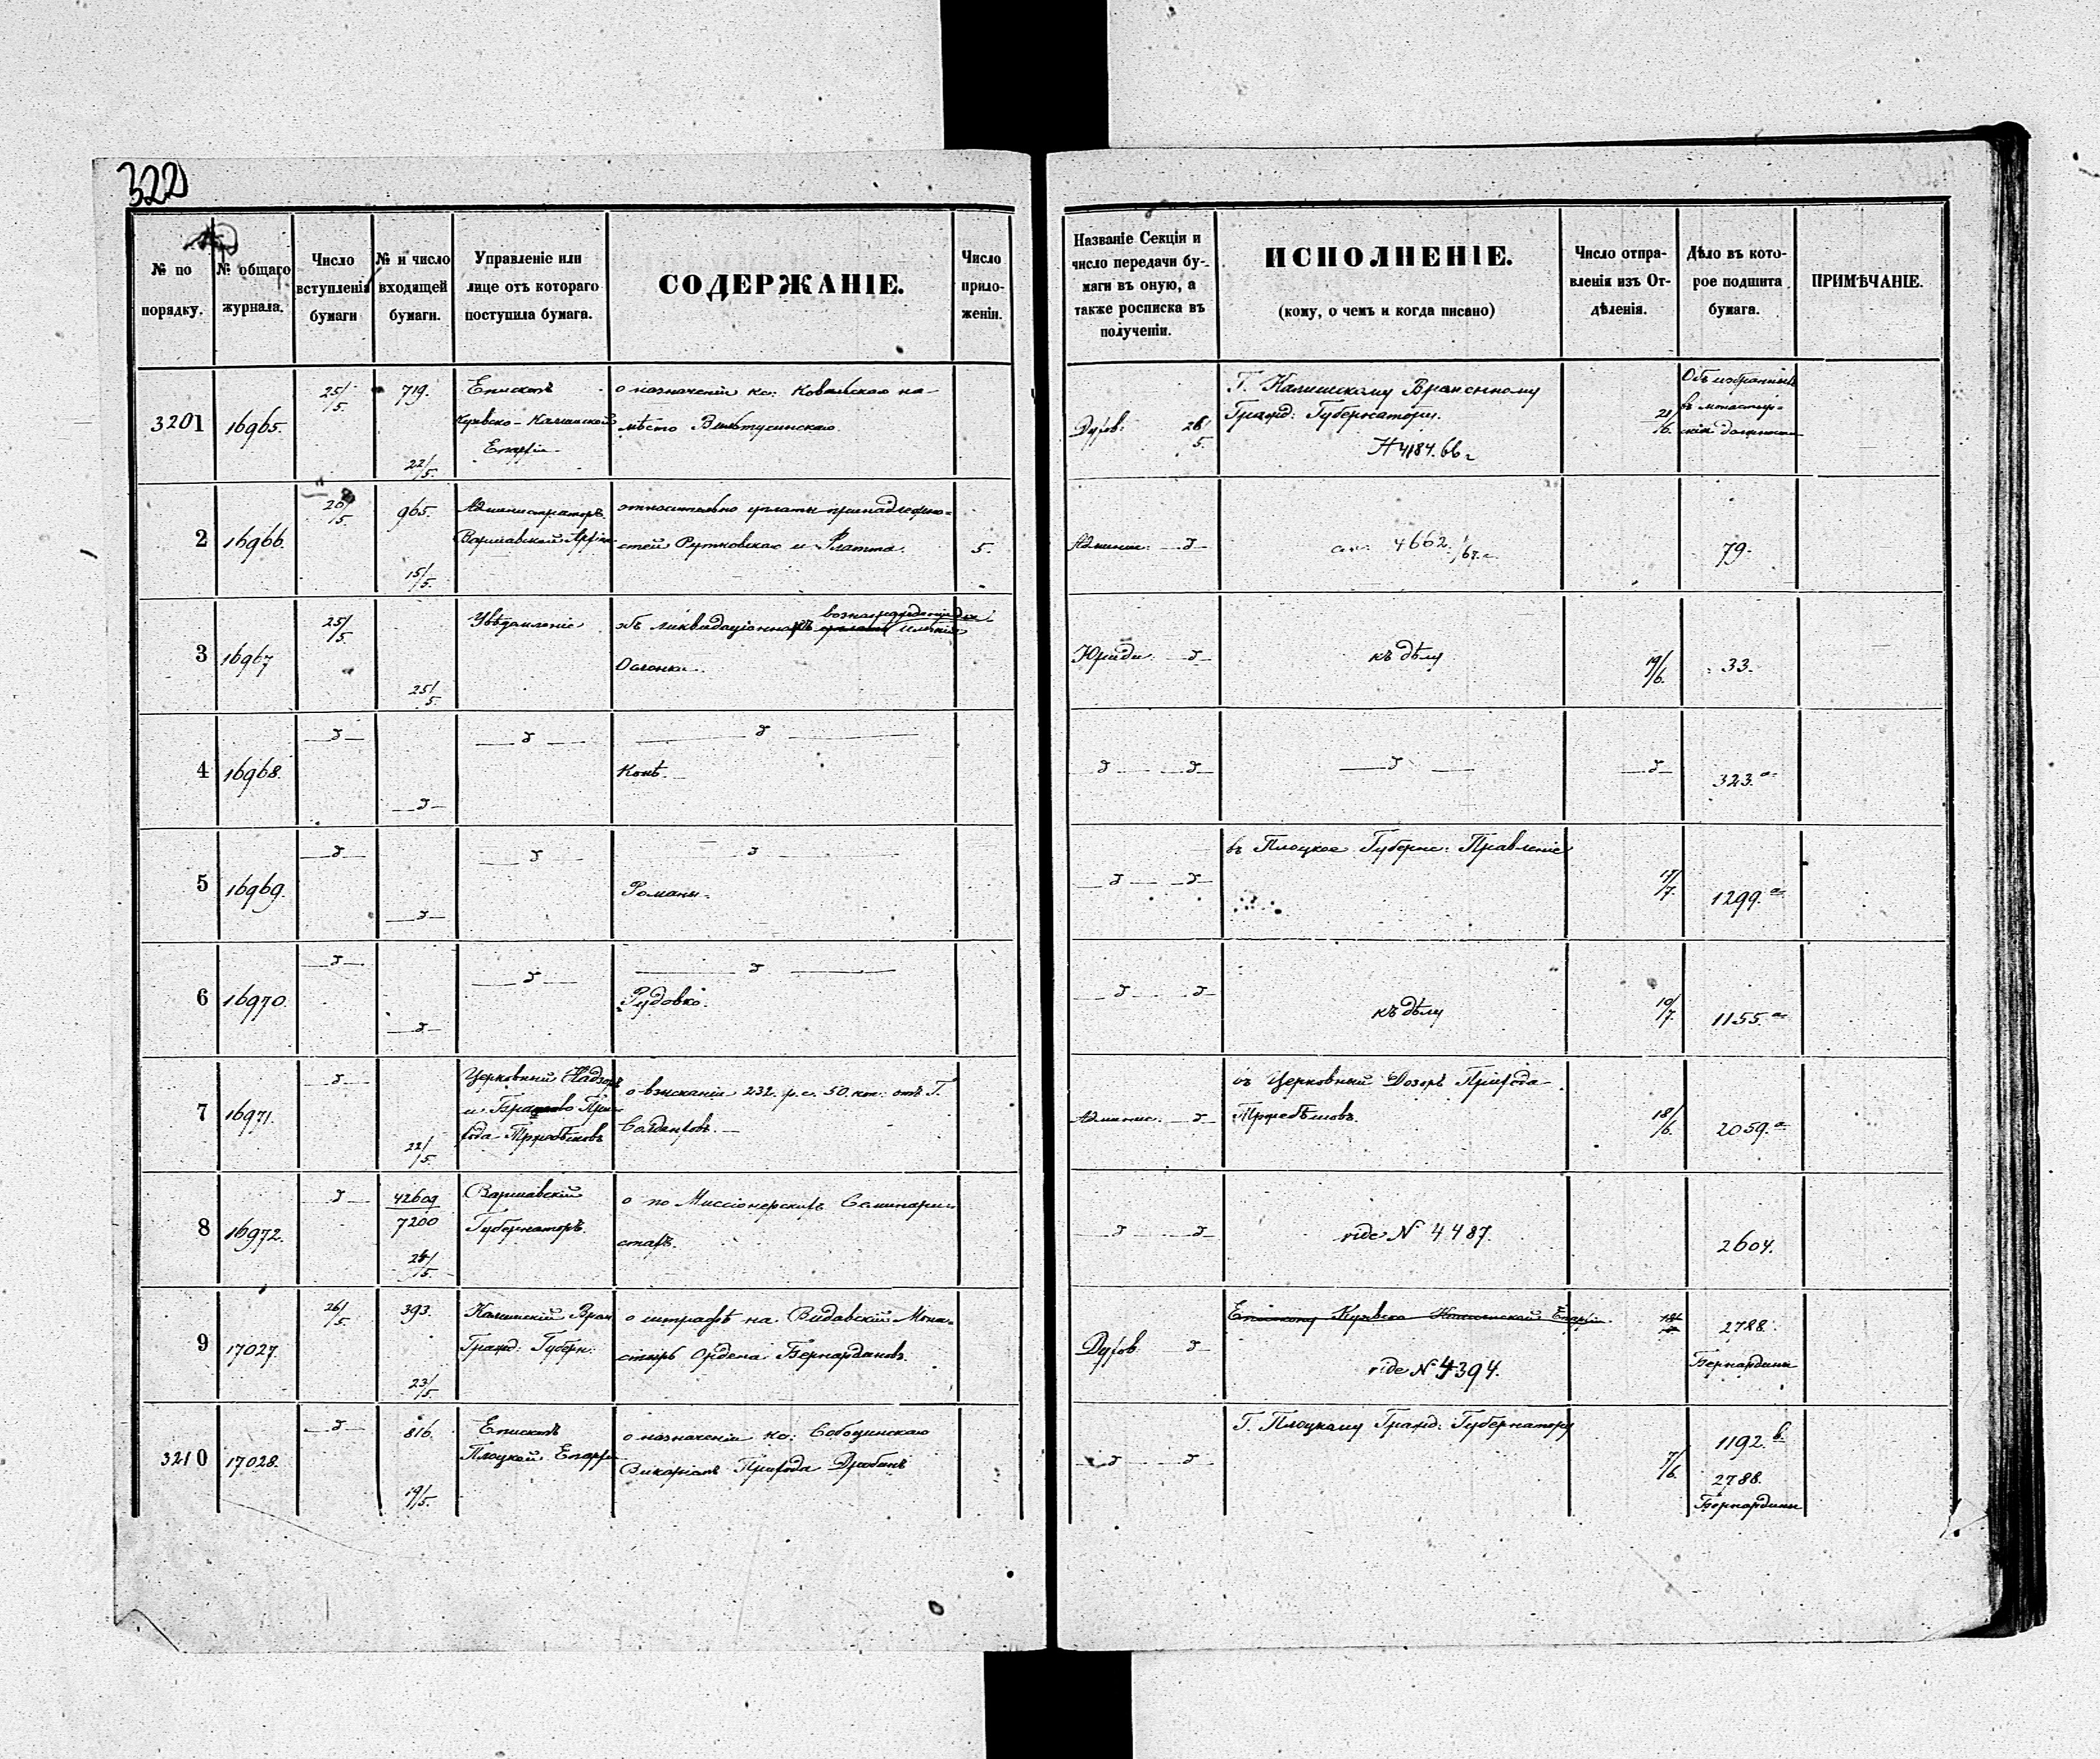 322
№ по порядку.
№ общаго журнала.
Число вступленія бумаги
№ и число входящей бумаги.
Управленіе или лице отъ котораго поступила бумага.
СОДЕРЖАНІЕ.
Число приложеніи.
Названіе Секціи и число передачи бумаги въ оную, а также росписка въ полученіи.
ИСПОЛНЕНІЕ.
(кому, о чемъ и когда писано)
Число отправленія изъ Отдѣленія.
Дѣло въ которое подшита бумага.
ПРИМѢЧАНІЕ.
3201 16965. 25/5. 719. 22/5.
Епископъ
Куявско-Калишской
Епархіи
о назначеніи кс: Ковальскаго на
мѣсто
Духов: 26/5.
Г. Калишскому Временному
Гражд: Губернатору.
N 4184. 66 г.
21/6.
Объ избраніи
въ монастыр-
скія должности
2 16966. 26/5. 965. 15/5.
Администраторъ
Варшавской Архіеп
относительно уплаты принадлежно-
стей Рутковскаго и Платта. 5.
Админис: д
4662./67 г.
79.
3 16967 25/5. 25/5.
Увѣдомленіе
объ ликвидаціонномъ вознагражденіи имѣнія
Юриди: д
къ дѣлу
19/6. 33.
4 16968. д д д д
Конѣ.
д д д д 323.а
5 16969. д д д д
Романы.
д д
въ Плоцкое Губернс: Правленіе
17/7. 1299.а
6 16970. д д д д
Рудовко.
д д
къ дѣлу
10/7. 1155.а
7 16971. д 22/5.
Церковный Надзоръ
и При-
хода
о взысканіи 232. р.с. 50. коп: отъ Г.
Админис: д
въ Церковный Дозоръ Прихода
18/6. 2059.а
8 16972. д 42609/7200 24/5.
Варшавскій
Губернаторъ.
о по Миссіонерскихъ Семинаріи
д д
vide N 4487.
2604.
9 17027. 26/5. 393. 23/5.
Калишскій Врем
Гражд: Губерн:
о штрафѣ на Видавскій Мона-
стырь Ордена Бернардиновъ.
Духов д
Епископу Куявско Калишской Епархіи.
vide N 4394.
2788.
Бернардины
3210 17028. д 816. 19/5.
Епископъ
Плоцкой Епархіи
о назначеніи кс: Соботинскаго
Викаріемъ Прихода Дробинъ
д д
Г. Плоцкому Гражд: Губернатору
7/6.
1192.б
2788.
Бернардины